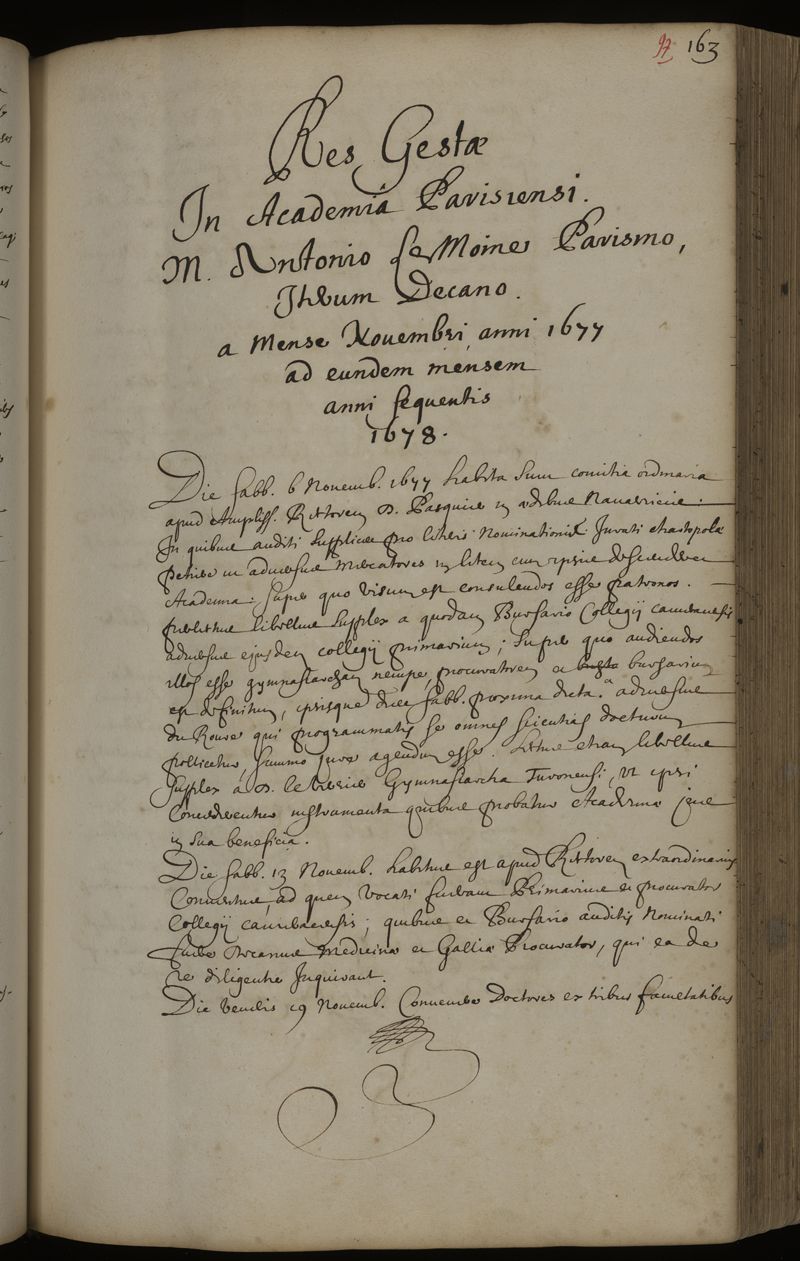 97 163
Res Gestæ
In Academiâ Parisiensi.
M. Antonio Le Moine Parismo,
Jurium Decano.
a Mense Nouembri anni 1677
ad eundem mensem
anni sequentis
1678.
Die sabb. 6 Nouemb. 1677 habita sunt comitia ordinaria
apud Ampliss. Rectorem D. Pasquier in ædibus Nauarricis.
In quibus auditi supplices pro literis Nominationis. Jurati chartopolæ
petiere in aduersus Mercatores in litem cum ipsius descendere
Academia: super quo visum est consulendos esse patronos.
libellus supplex a quodam Bursario Collegij cameracensis
aduersus ejusdem collegij primarium; super quo audiendos
illos esse gymnasiarcham nempe, procuratorem et bursarium
est definitum, ipsisque dies sabb. proxima dicta. aduersus
du Roure qui programmatis se omnes scientias docturum
pollicetur, summo jure agendum esse. lectus etiam libellus
supplex a D. Gymnasiarcha Turonensi, vt ipsi
Concederentur instrumenta quibus probatur Academiæ jus
in sua beneficia.
Die sabb. 13 Nouemb. habitus est apud Rectorem extraordinarius
Conuentus, ad quem vocati fuerant Primarius et procurator
Collegij cameracensis; quibus et Bursario auditis Nominati
sunt Decanus Medicinæ et Galliæ Procurator, qui ea de
re diligenter Inquirant.
Die veneris 19 Nouemb. Conuenere Doctores ex tribus facultatibus